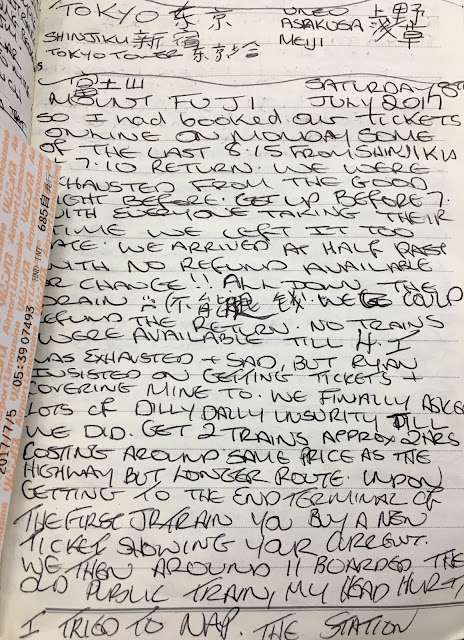 TOKYO 东京
UNEO 上野
ASAKUSA 浅草
SHINJIKU 新宿
MEIJI
TOKYO TOWER 东京塔
富士山 SATURDAY 8TH
MOUNT FUJI JULY 2017
SO I had booked our TICKETS
ONLINE ON MONDAY SOME
OF THE LAST 8.15 FROM SHINJIKU
7.10 RETURN. WE WERE
EXHAUSTED FROM THE GOOD
NIGHT BEFORE. GET UP BEFORE 7.
WITH EVERYONE TAKING THEIR
TIME WE LEFT IT TOO
LATE. WE ARRIVED AT HALF PAST
WITH NO REFUND AVAILABLE
OR CHANGE!! ALL DOWN THE
DRAIN 不能退钱 WE COULD
REFUND THE RETURN. NO TRAINS
WERE AVAILABLE TILL 4. I
WAS EXHAUSTED + SAD, BUT RYAN
INSISTED ON GETTING TICKETS +
COVERING MINE TO. WE FINALLY ASKED
LOTS OF DILLY DALLY UNSURITY TILL
WE DID. GET 2 TRAINS APPROX 2HRS
COSTING AROUND SAME PRICE AS THE
HIGHWAY BUT LONGER ROUTE. UPON
GETTING TO THE END TERMINAL OF
THE FIRST JR TRAIN YOU BUY A NEW
TICKET SHOWING YOUR CURRENT.
WE THEN AROUND 11 BOARDED THE
OLD PUBLIC TRAIN, MY HEAD HURT,
I TRIED TO NAP. THE STATION
2017/7/5 05:39 07493
HND-INT 685自 発行